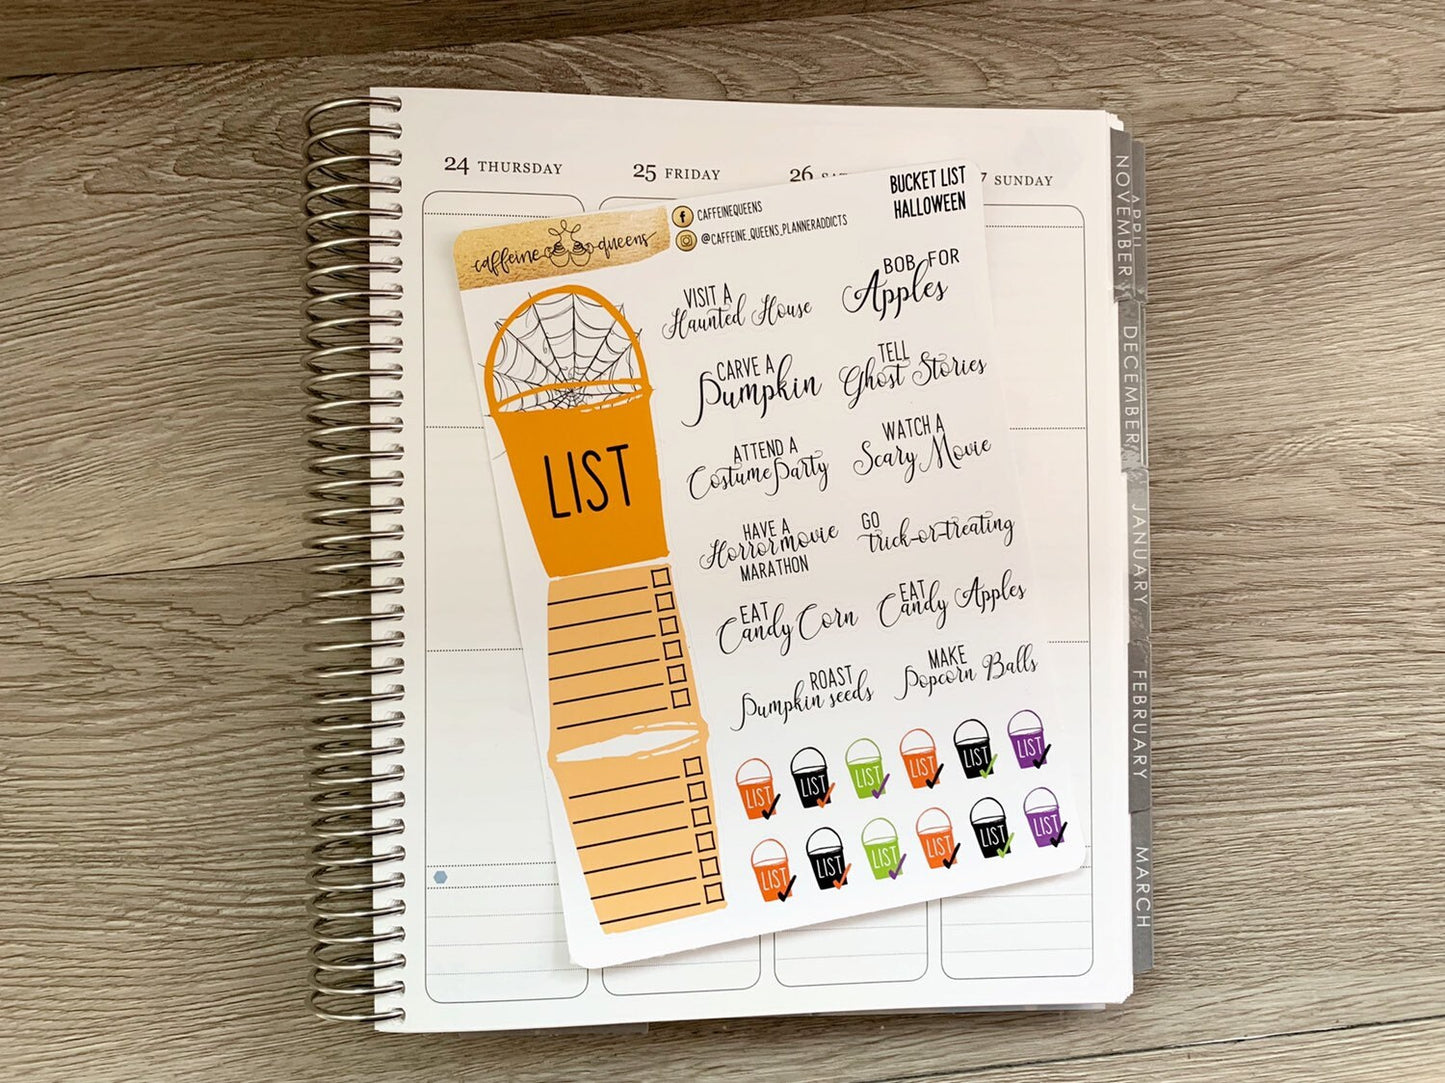 24 THURSDAY
25 FRIDAY
26
7 SUNDAY
caffeine queens
CAFFEINEQUEENS
@CAFFEINE_QUEENS_PLANNERADDICTS
BUCKET LIST
HALLOWEEN
LIST
VISIT A
Haunted House
BOB FOR
Apples
CARVE A
Pumpkin
TELL
Ghost Stories
ATTEND A
Costume Party
WATCH A
Scary Movie
HAVE A
Horror movie
MARATHON
GO
trick-or-treating
EAT
Candy Corn
EAT
Candy Apples
ROAST
Pumpkin seeds
MAKE
Popcorn Balls
LIST LIST LIST LIST LIST LIST
LIST LIST LIST LIST LIST LIST
NOVEMBER
APRIL
DECEMBER
JANUARY
FEBRUARY
MARCH